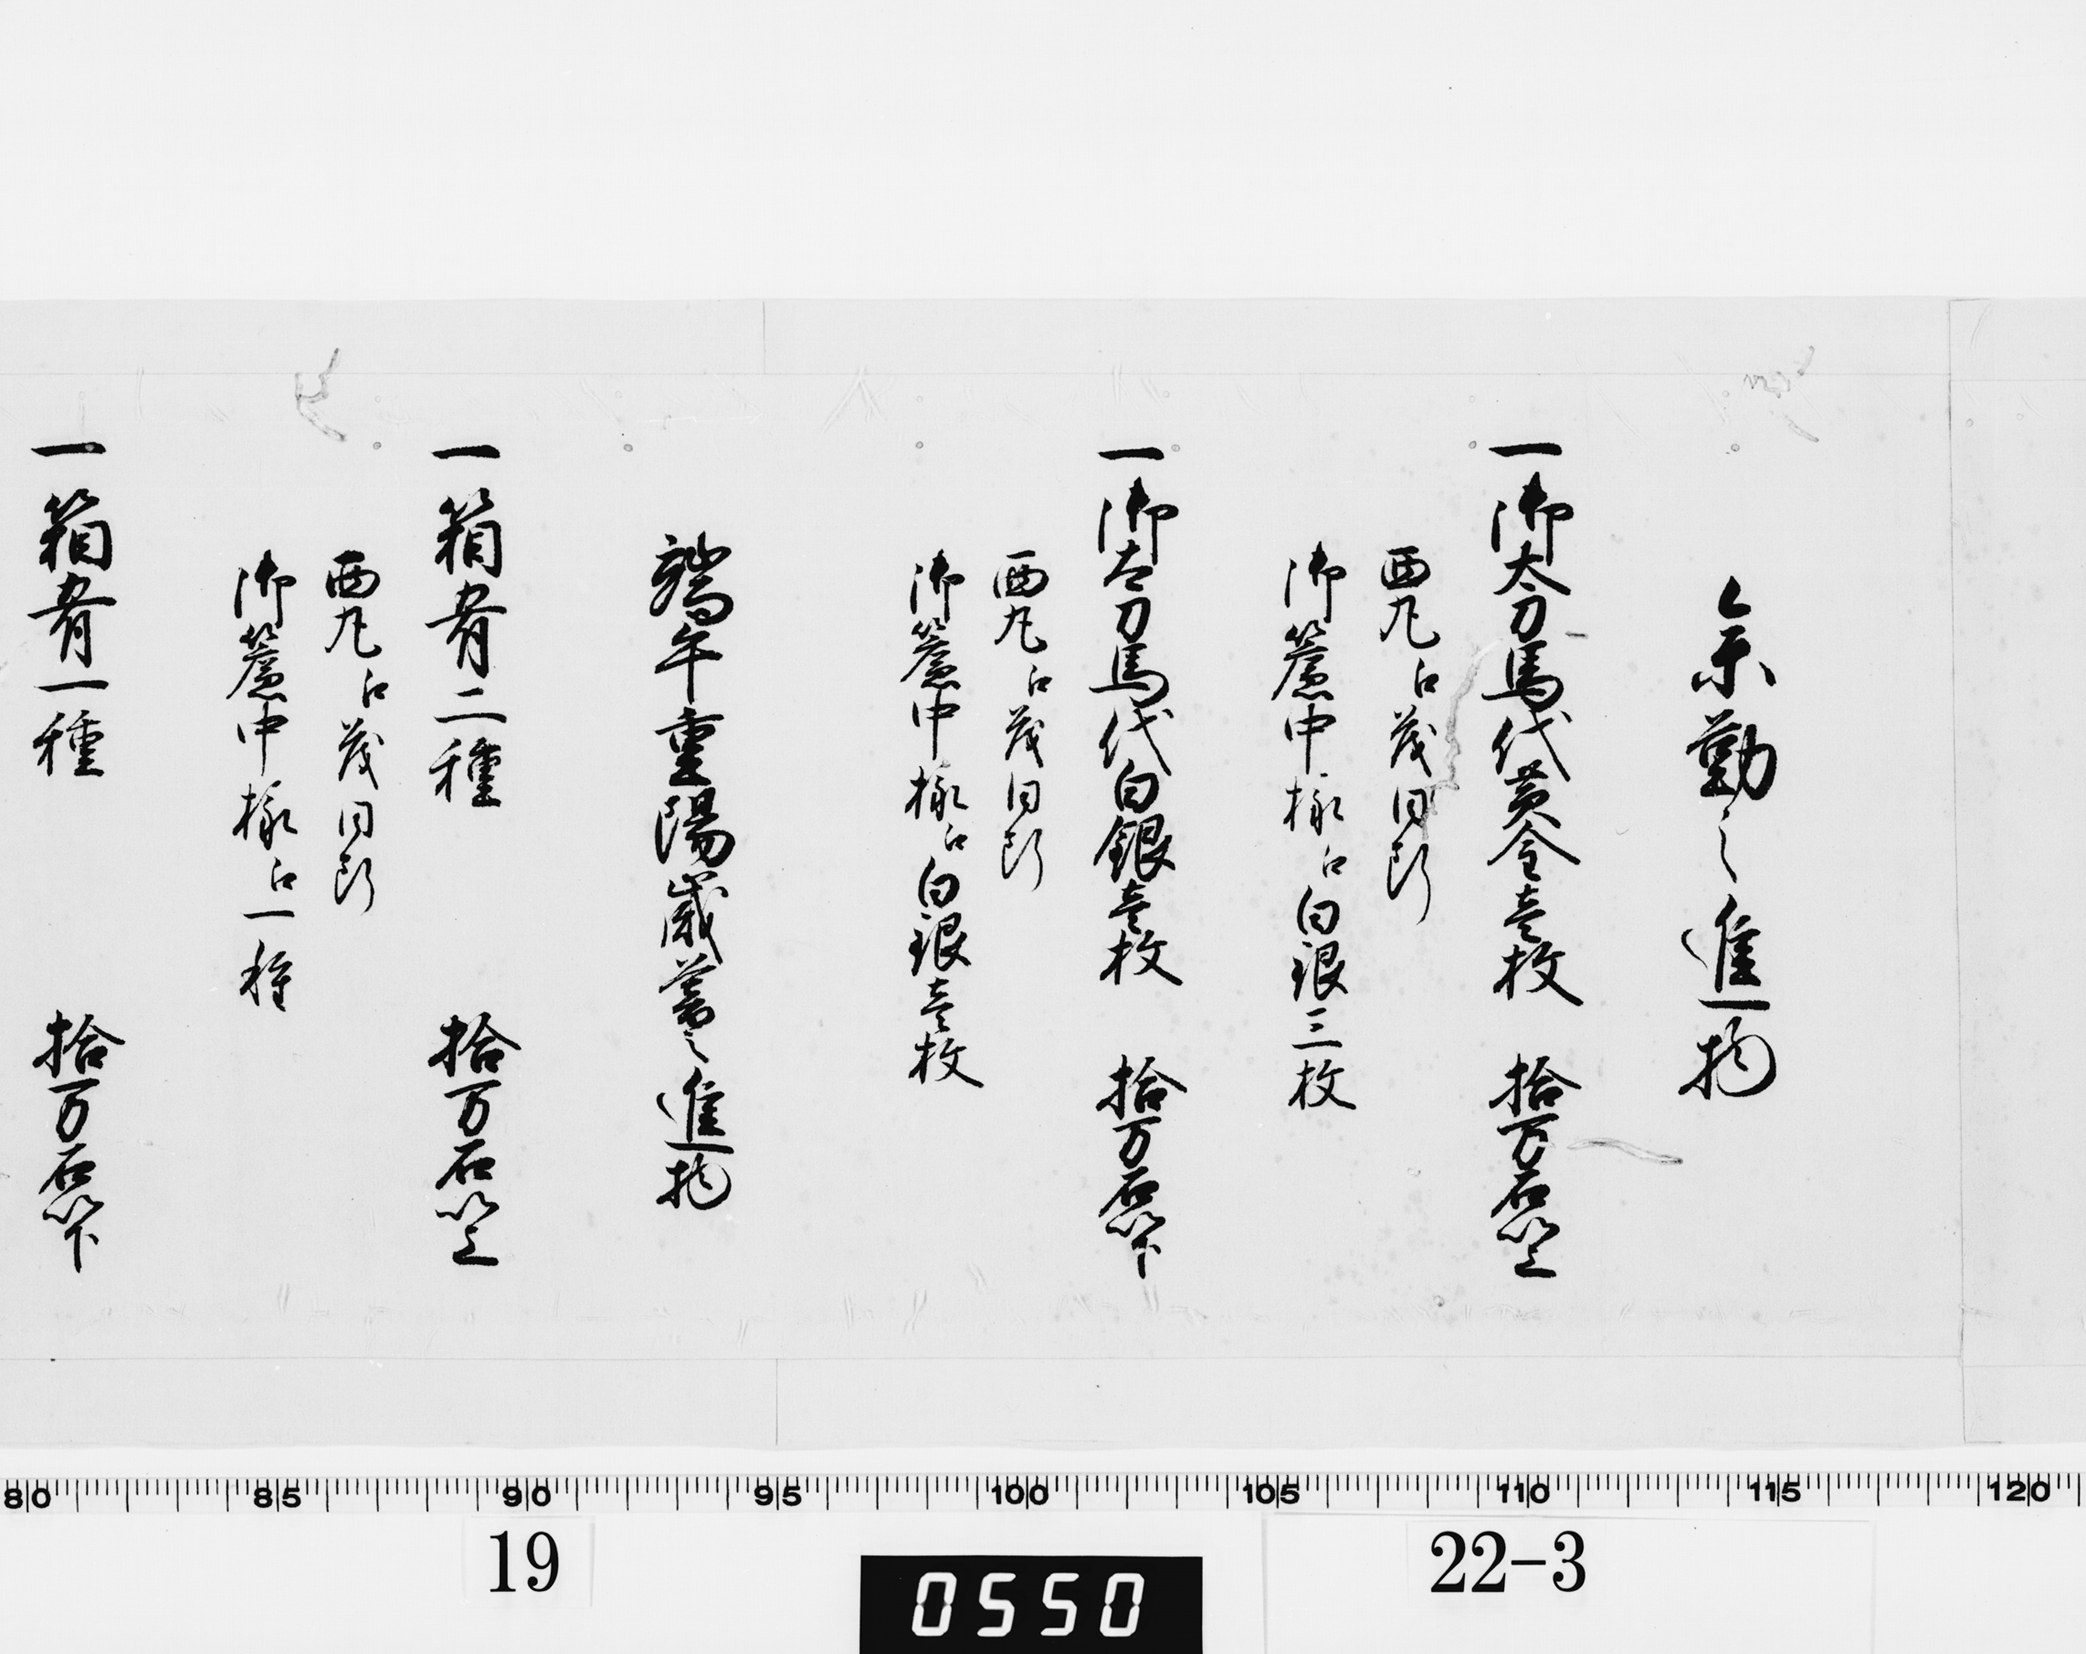 参勤之進物
一御太刀馬代黄金壱枚　拾万石以上
西丸江茂同断
御簾中様江白銀三枚
一御太刀馬代白銀壱枚　拾万石以下
西丸江茂同断
御簾中様江白銀壱枚
端午重陽歳暮之進物
一箱肴二種　拾万石以上
西丸江茂同断
御簾中様江一種
一箱肴一種　拾万石以下
80 85 90 95 100 105 110 115 120
19
0550
22-3